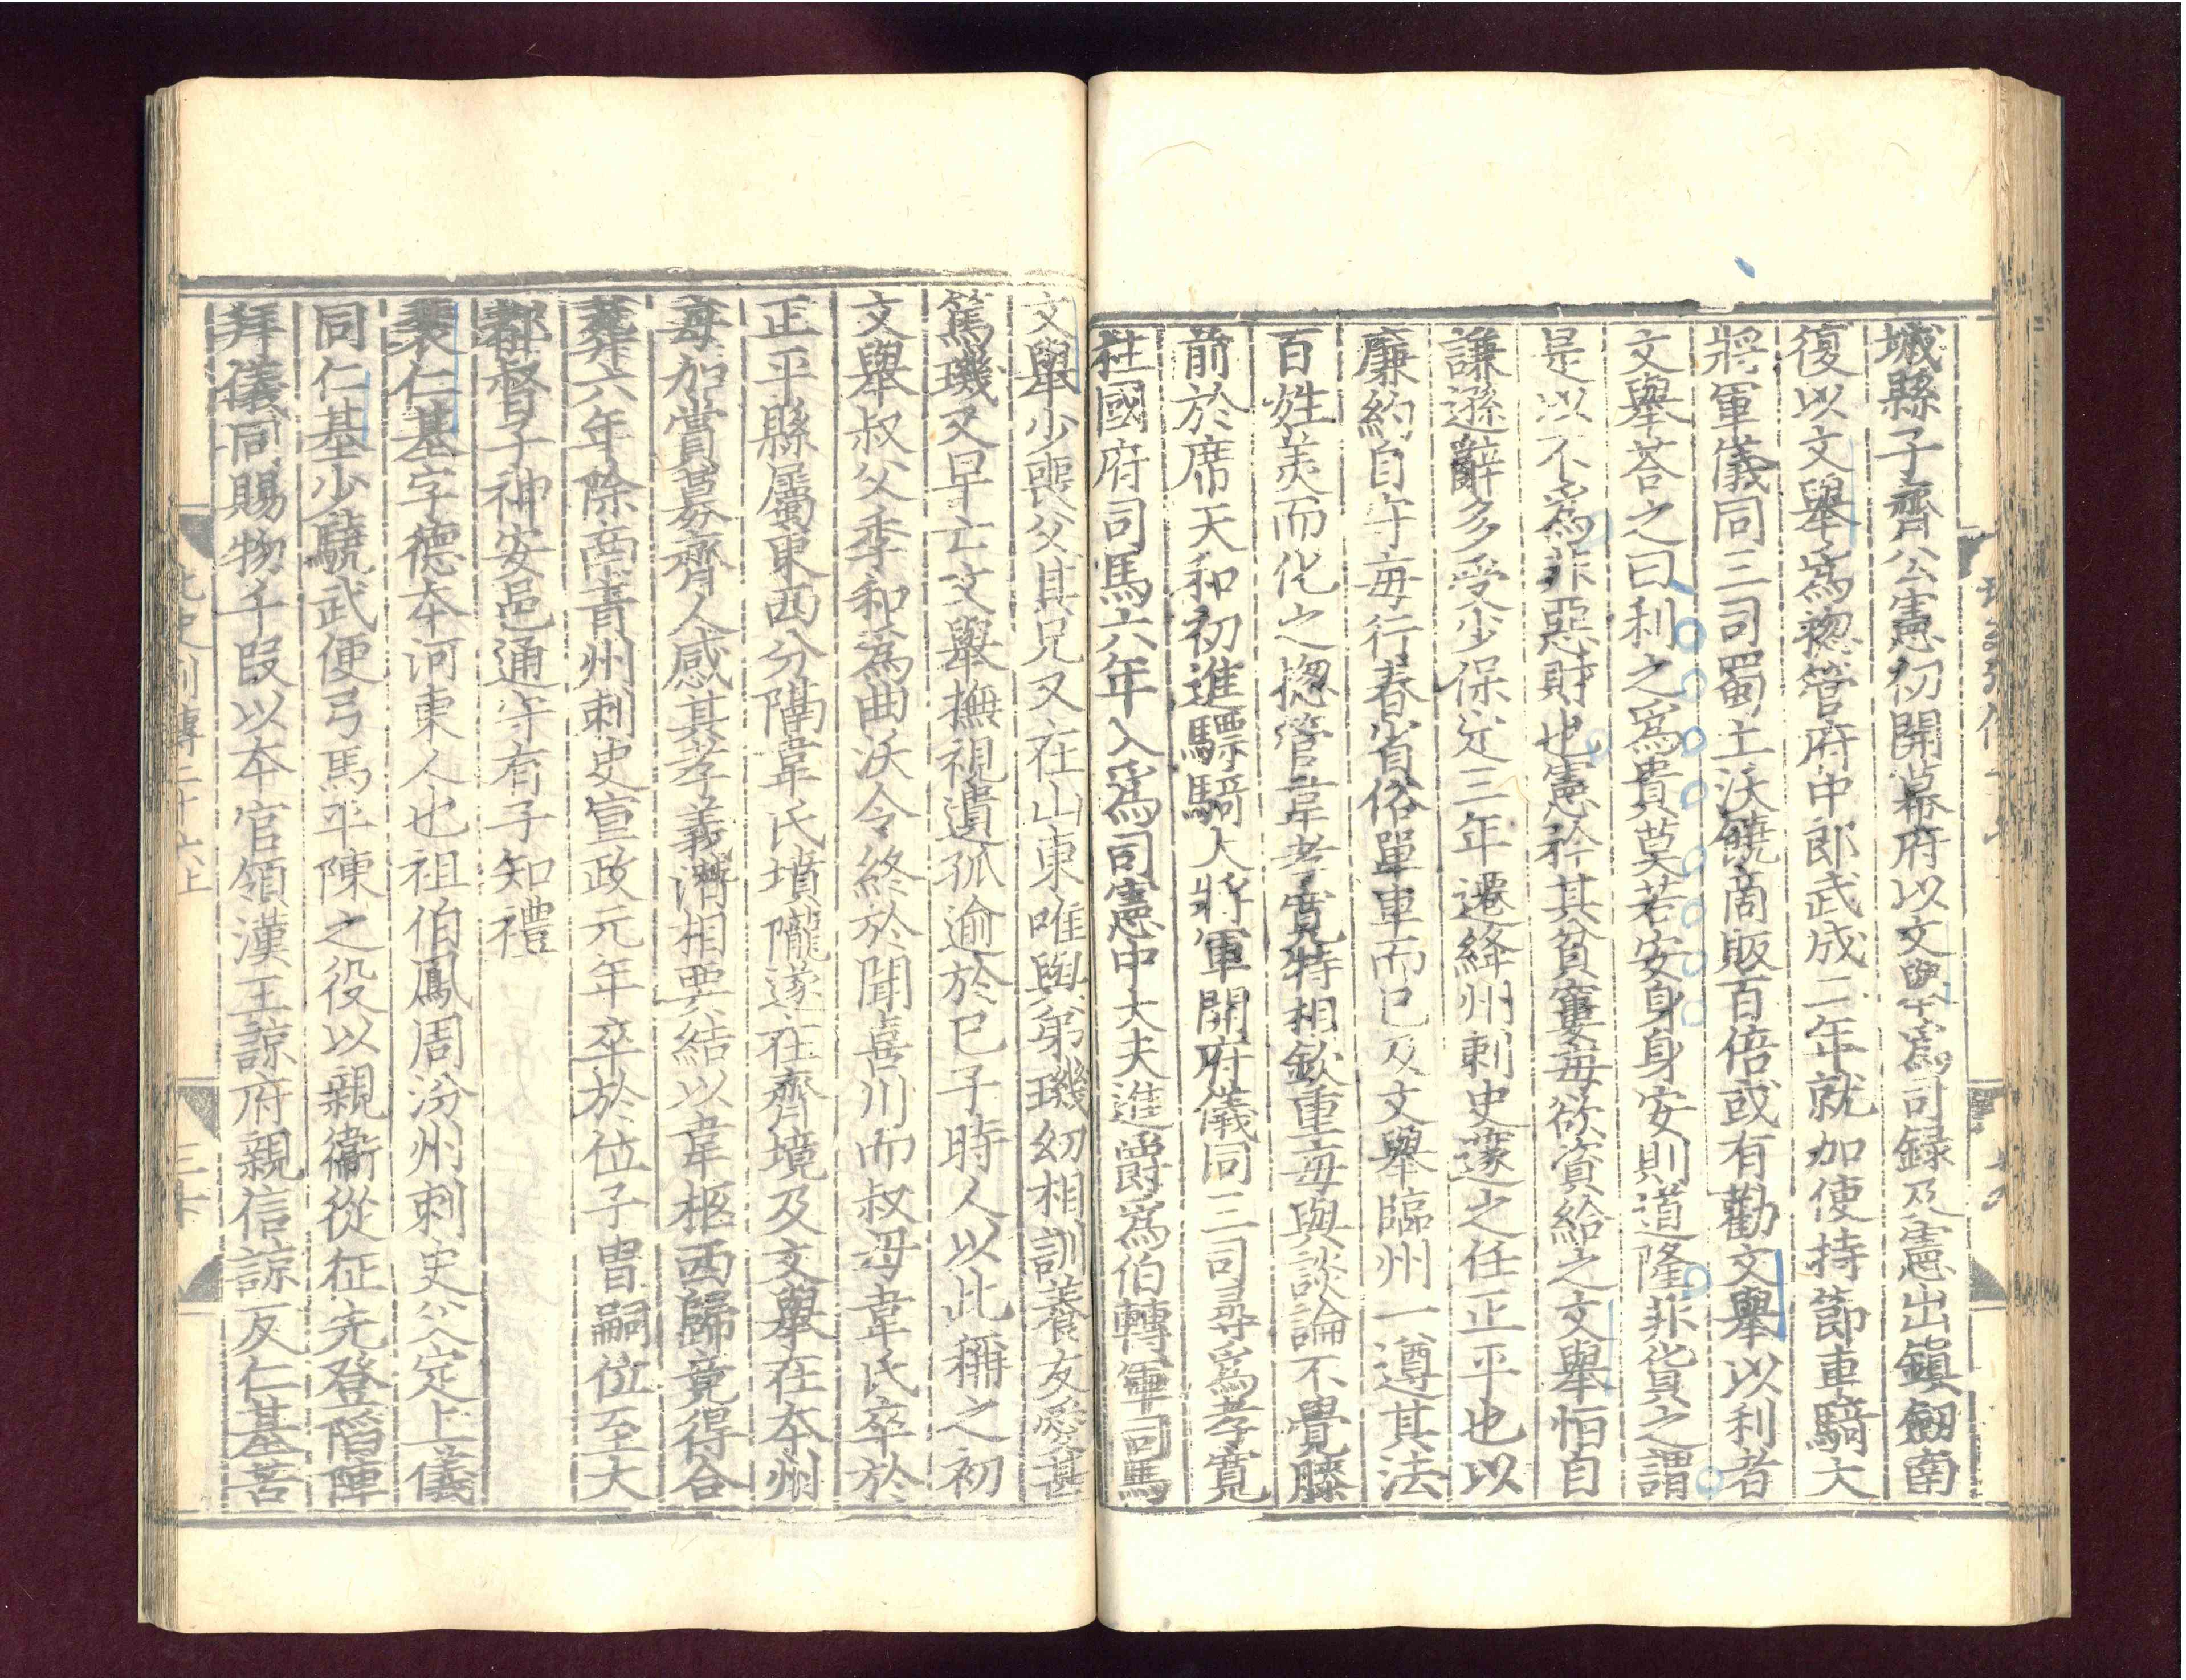 城縣子齊公憲初開幕府以文舉爲司録及憲出鎮劒南
復以文舉爲揔管府中郎武成二年就加使持節車騎大
將軍儀同三司蜀土沃饒商販百倍或有勸文舉以利者
文舉荅之曰利之爲貴莫若安身身安則道隆非貨之謂
是以不爲非惡財也憲矜其貧窶每欲資給之文舉恒自
謙遜辭多受少保定三年遷絳州刺史邃之任正平也以
廉約自守每行春省俗單車而已及文舉臨州一遵其法
百姓美而化之揔管韋孝寬特相欽重每與談論不覺膝
前於席天和初進驃騎大將軍開府儀同三司尋爲孝寬
柱國府司馬六年入爲司憲中大夫進爵爲伯轉軍司馬
文舉少喪父其兄又在山東唯與弟璣幼相訓養友愛甚
篤璣又早亡文舉撫視遺孤逾於己子時人以此稱之初
文舉叔父季和爲曲沃令終於聞喜川而叔母韋氏卒於
正平縣屬東西分隔韋氏墳隴遂在齊境及文舉在本州
每加賞募齊人感其孝義潛相要結以韋柩西歸竟得合
葬六年除南青州刺史宣政元年卒於位子冑嗣位至大
都督子神安邑通守有子知禮
裴仁基字德本河東人也祖伯鳳周汾州刺史父定上儀
同仁基少驍武便弓馬平陳之役以親衞從征先登䧟陣
拜儀同賜物千叚以本官領漢王諒府親信諒反仁基苦
北史列傳二十六上
三十